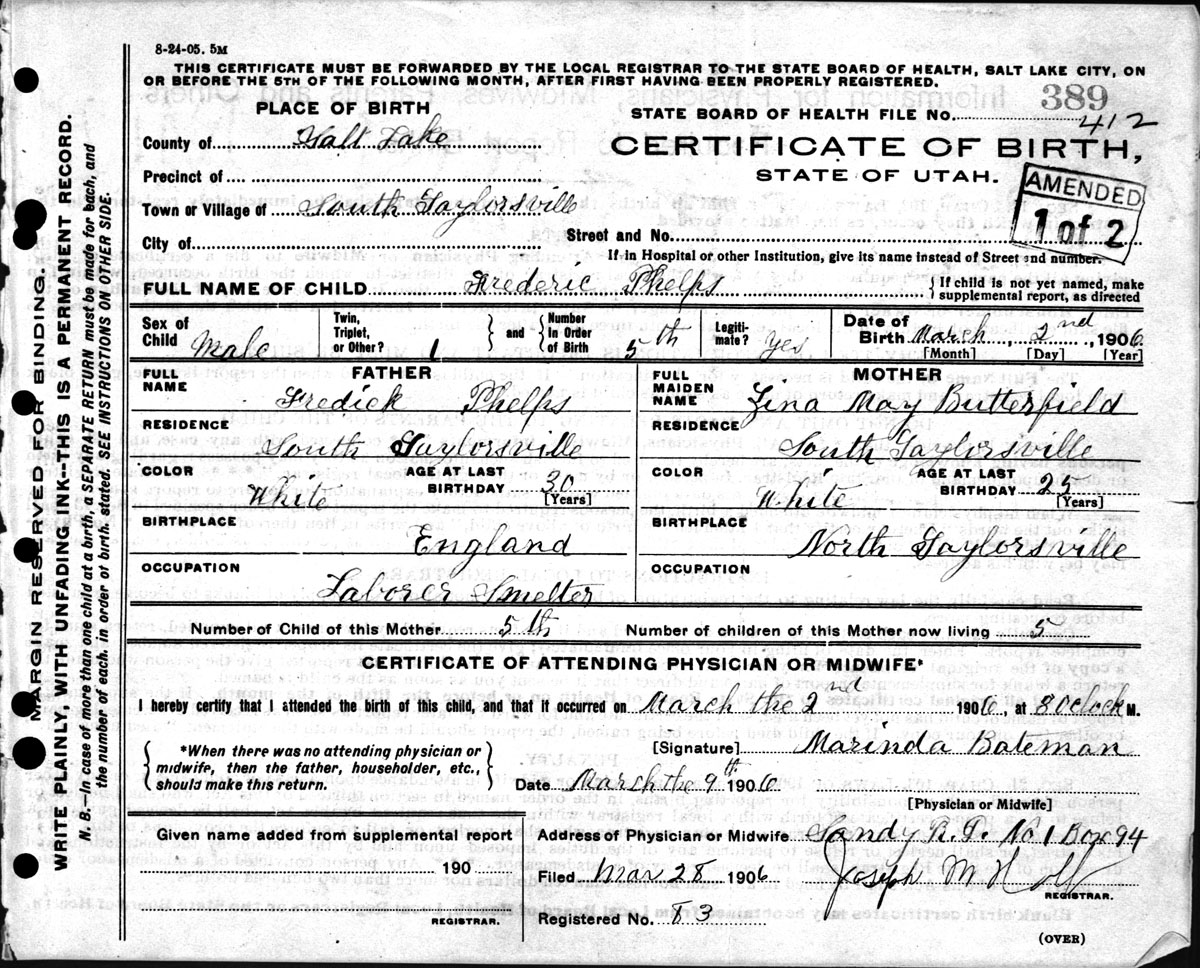 8-24-05. 5M
THIS CERTIFICATE MUST BE FORWARDED BY THE LOCAL REGISTRAR TO THE STATE BOARD OF HEALTH, SALT LAKE CITY, ON
OR BEFORE THE 5TH OF THE FOLLOWING MONTH, AFTER FIRST HAVING BEEN PROPERLY REGISTERED.
389
PLACE OF BIRTH
STATE BOARD OF HEALTH FILE No. 412
County of Salt Lake
CERTIFICATE OF BIRTH,
STATE OF UTAH.
Precinct of
AMENDED
1 of 2
Town or Village of South Taylorsville
City of
Street and No.
If in Hospital or other Institution, give its name instead of Street and number.
FULL NAME OF CHILD Frederic Phelps
{ If child is not yet named, make
supplemental report, as directed
Sex of Child Male
Twin, Triplet, or Other? 1
and { Number In Order of Birth 5th
Legiti- mate? yes
Date of Birth March, 2nd, 1906
[Month] [Day] [Year]
FATHER
FULL NAME Fredick Phelps
MOTHER
FULL MAIDEN NAME Zina May Butterfield
RESIDENCE South Taylorsville
RESIDENCE South Taylorsville
COLOR White
AGE AT LAST BIRTHDAY 30 [Years]
COLOR White
AGE AT LAST BIRTHDAY 25 [Years]
BIRTHPLACE England
BIRTHPLACE North Taylorsville
OCCUPATION Laborer Smelter
OCCUPATION
Number of Child of this Mother 5th
Number of children of this Mother now living 5
CERTIFICATE OF ATTENDING PHYSICIAN OR MIDWIFE*
I hereby certify that I attended the birth of this child, and that it occurred on March the 2nd 1906, at 8 Oclock M.
{ *When there was no attending physician or
midwife, then the father, householder, etc.,
should make this return. }
[Signature] Marinda Bateman
Date March the 9th 1906
[Physician or Midwife]
Given name added from supplemental report
190
REGISTRAR.
Address of Physician or Midwife Sandy R.D. No 1 Box 94
Filed Mar 28 1906
Joseph M Holt
REGISTRAR.
Registered No. 83
(OVER)
MARGIN RESERVED FOR BINDING.
WRITE PLAINLY, WITH UNFADING INK--THIS IS A PERMANENT RECORD.
N. B.--In case of more than one child at a birth, a SEPARATE RETURN must be made for each, and
the number of each, in order of birth, stated. SEE INSTRUCTIONS ON OTHER SIDE.